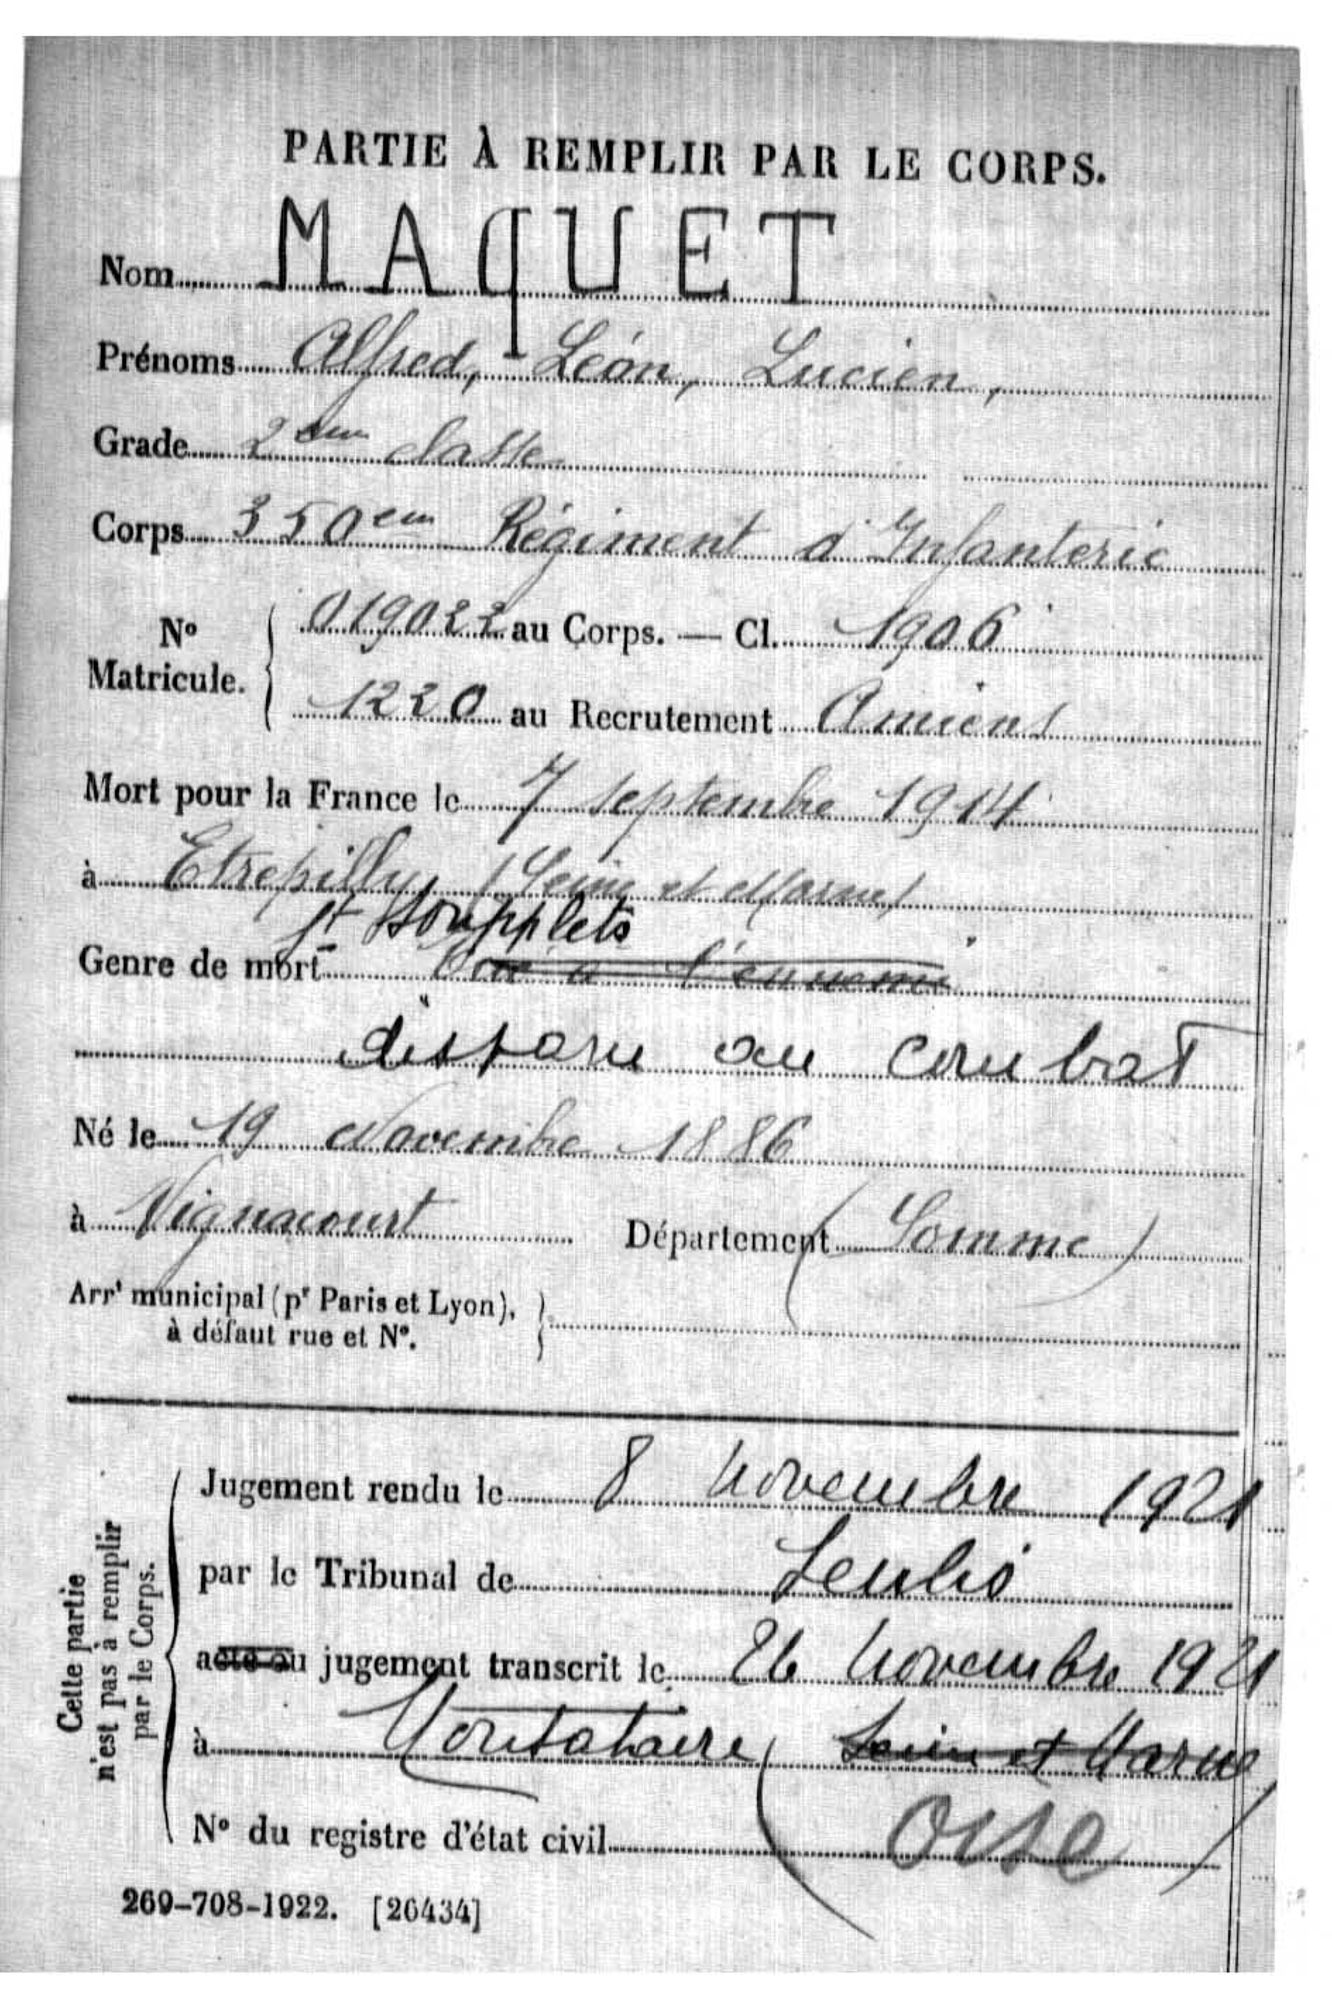 PARTIE À REMPLIR PAR LE CORPS.
Nom MAQUET
Prénoms Alfred, Léon, Lucien,
Grade 2eme classe
Corps 350em Régiment d'Infanterie
N° Matricule. 019022 au Corps. — Cl. 1906
1220 au Recrutement Amiens
Mort pour la France le 7 septembre 1914
à Etrepilly (Seine et Marne)
St Soupplets
Genre de mort Tué à l'ennemi
disparu au combat
Né le 19 Novembre 1886
à Vignacourt Département (Somme)
Arrt municipal (pr Paris et Lyon),
à défaut rue et N°.
Cette partie
n'est pas à remplir
par le Corps.
Jugement rendu le 8 novembre 1921
par le Tribunal de Senlis
acte ou jugement transcrit le 26 novembre 1921
à Montataire (Seine et Marne
Oise)
N° du registre d'état civil
269-708-1922. [26434]